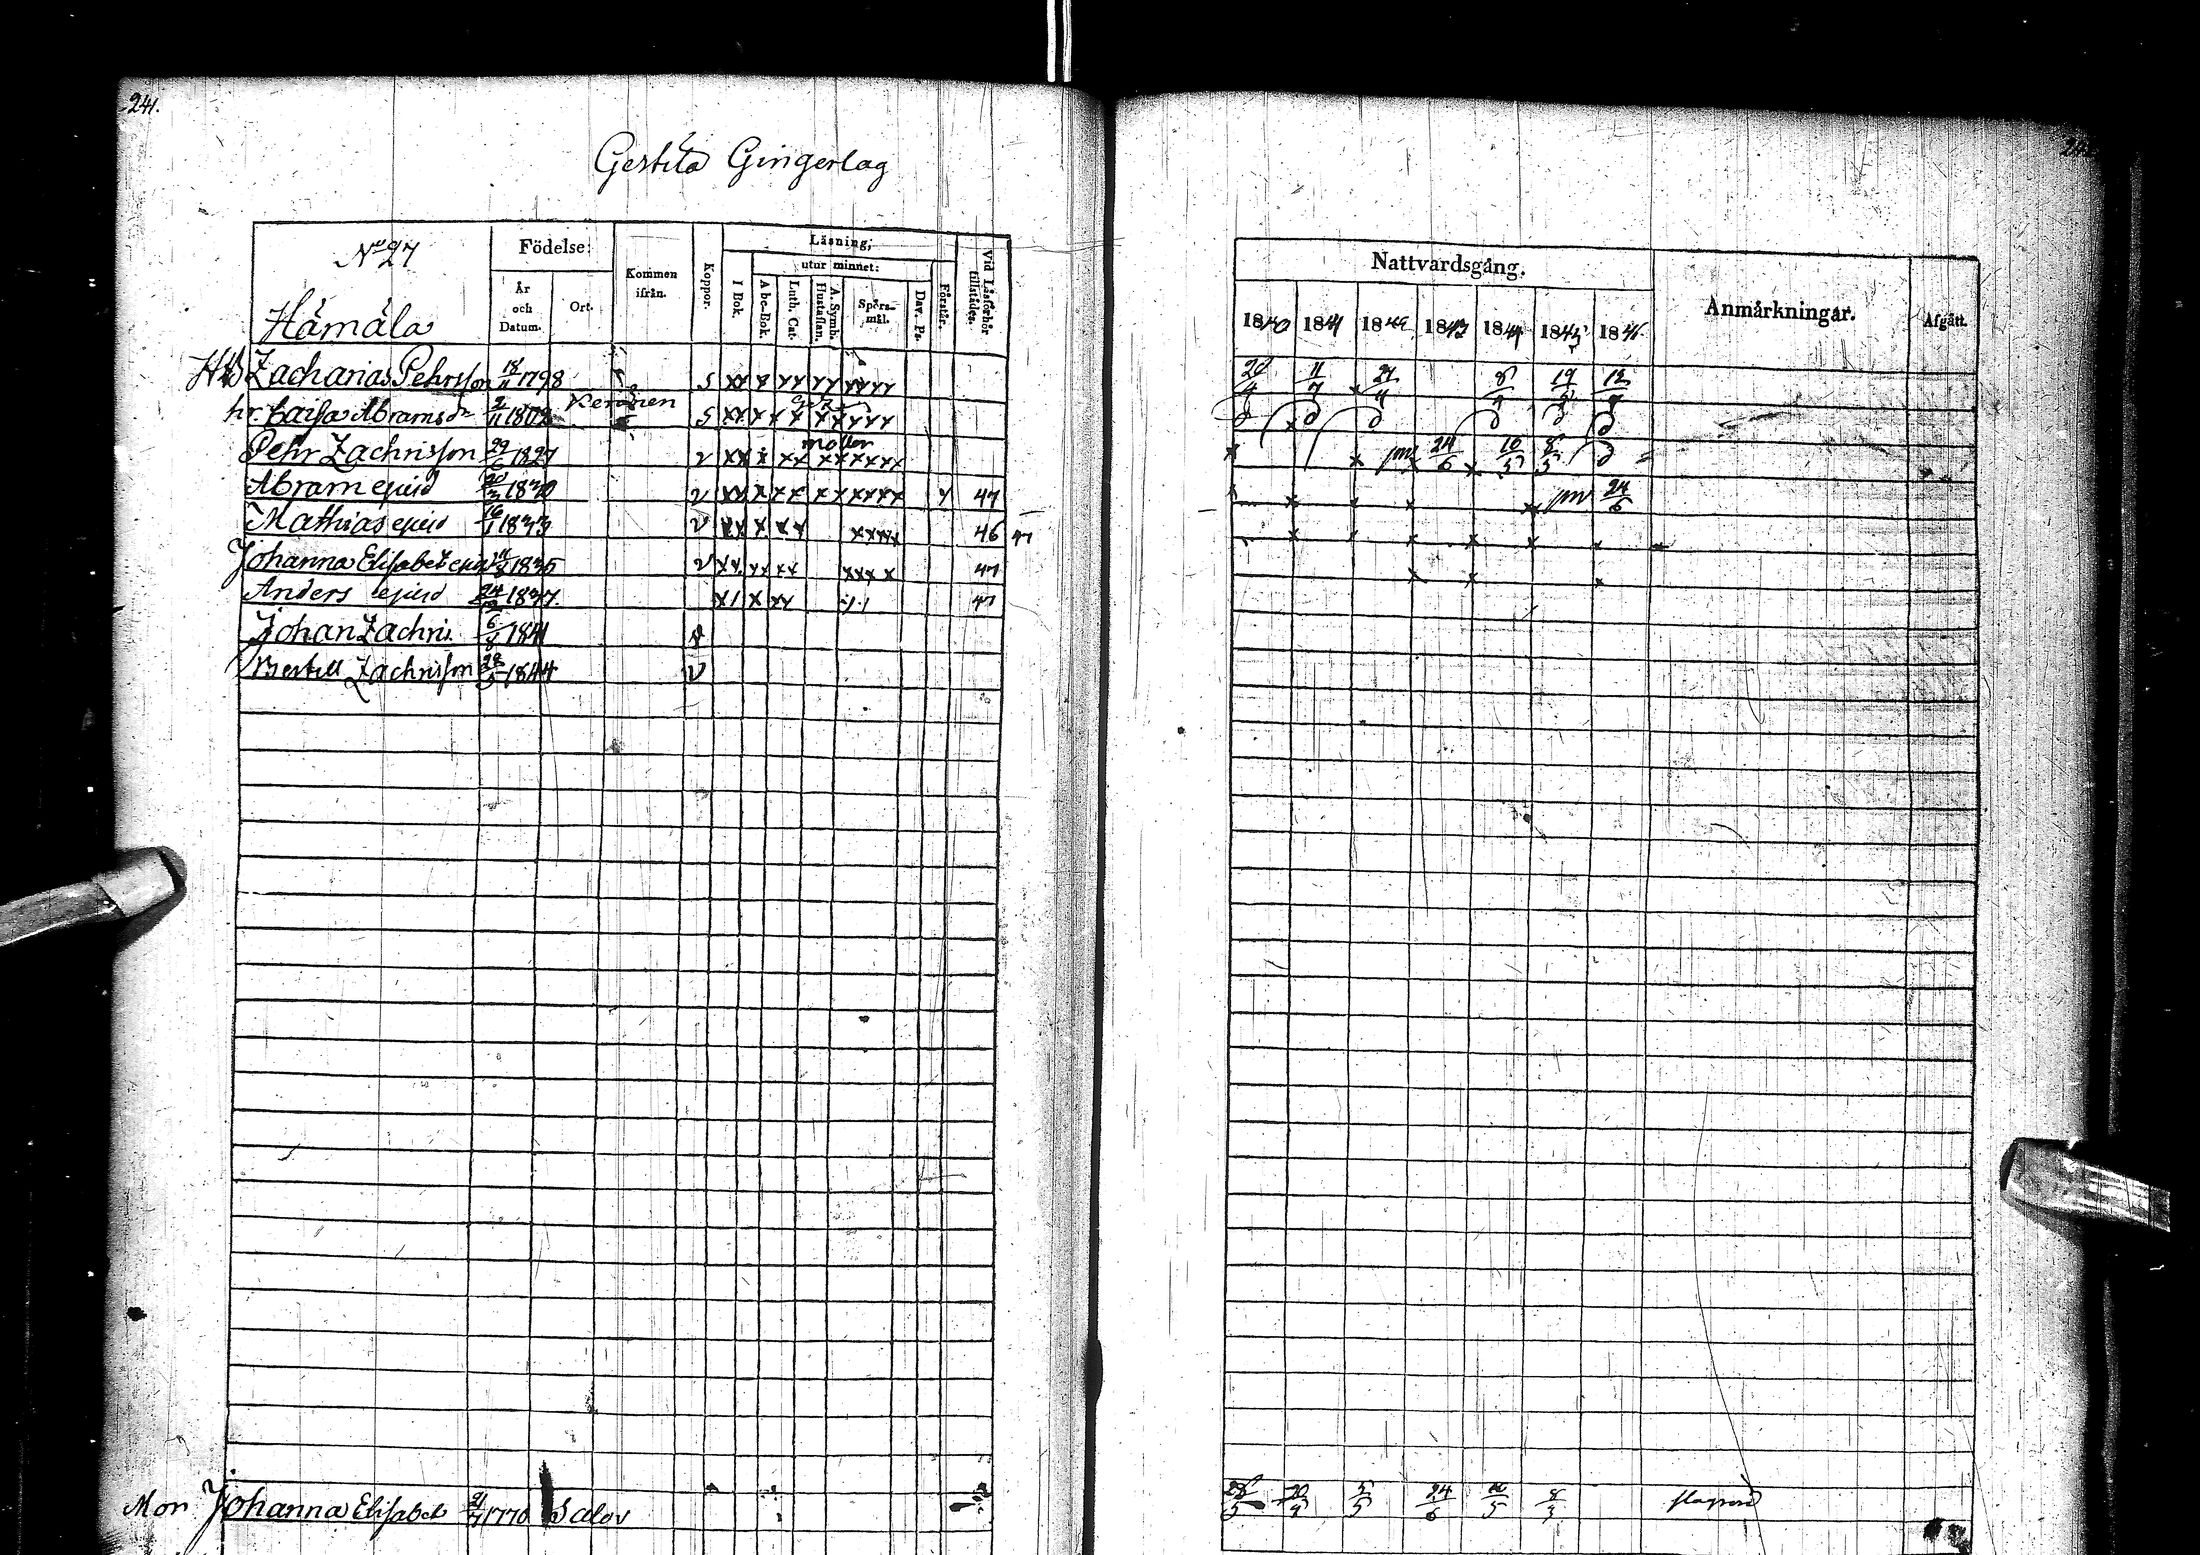 241.
Gertila Gingerlag
No 27
Hämäla
Födelse:
År och Datum.
Ort.
Kommen ifrån.
Koppor.
Läsning,
I Bok.
utur minnet:
A be-Bok.
Luth. Cat.
A. Symb. Hustaflan.
Spörs-mål.
Dav. Ps.
Förstår.
Vid Läsförhör tillstädes.
Zacharias Pehrsson 18/11 1798 s xx x xx xx xxxx
hr. Caisa Abramsdr 2/11 1802 s xx x x x x x xxxx
Pehr Zachrisson 29/6 1827 v xx x xx x xxxxx
Abram ejusd 20/3 1830 v xx x xx x xxxxx 47
Mathias ejusd 16/1 1833 v xx x xx xxxx 46 47
Johanna Elisabet 1835 v xx xx xx xxx x 47
Anders ejusd 24/12 1837. x/ x xx 47
Johan Zachris. 6/8 1841
Bertell Zachrisson 28/5 1844 v
Mor Johanna Elisabet 1770 Salov
Nattvardsgång.
1840 1841 1842 1843 1844 1845 1846
Anmärkningar.
Afgått.
11/7 19/5
24/6 10/5 8/5
24/6
28/5 5/5 24/6 10/5 8/3